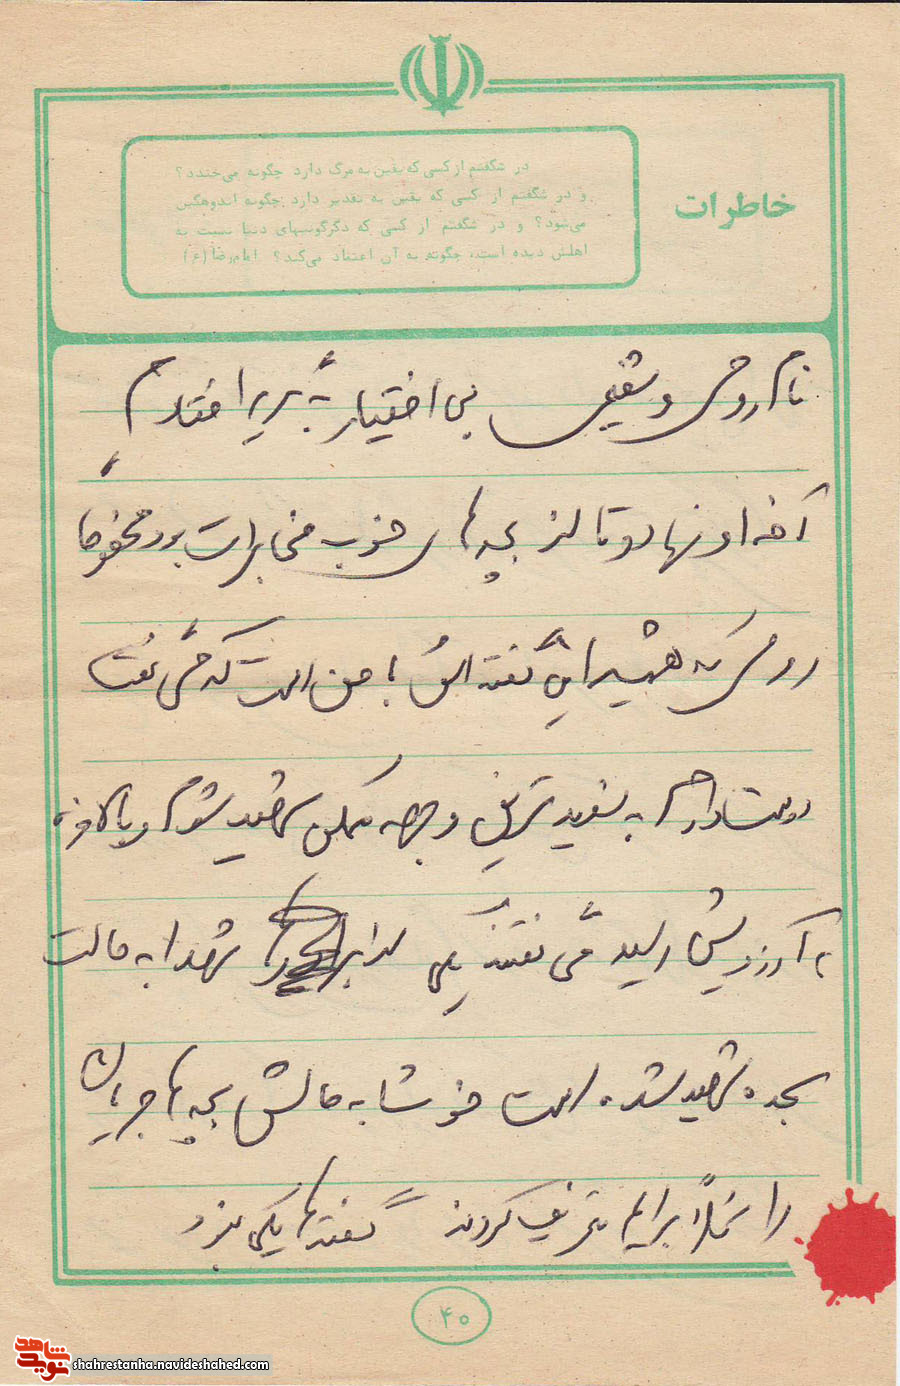 خاطرات
در شگفتم از کسی که یقین به مرگ دارد چگونه می‌خندد؟
و در شگفتم از کسی که یقین به تقدیر دارد چگونه اندوهگین
می‌شود؟ و در شگفتم از کسی که دگرگونیهای دنیا نسبت به
اهلش دیده است، چگونه به آن اعتماد می‌کند؟ امام رضا (ع)
نام روحی و شفیعی بی اختیار به گریه افتادم
آخه اونها دو تا از بچه های خوب مخابرات بود مخصوصا
روحی که همیشه این گفته اش با من است که می گفت
دوست دارم به شدید ترین وجهه ممکن شهید شوم و بالاخره
به آرزویش رسید می گفتند یکی از شهدا به حالت
سجده شهید شده است خوشا به حالش بچه ها جریان
را کاملاً برایم تعریف کردند گفتند یکی
۴۰
شاهد
نوید
shahrestanha.navideshahed.com